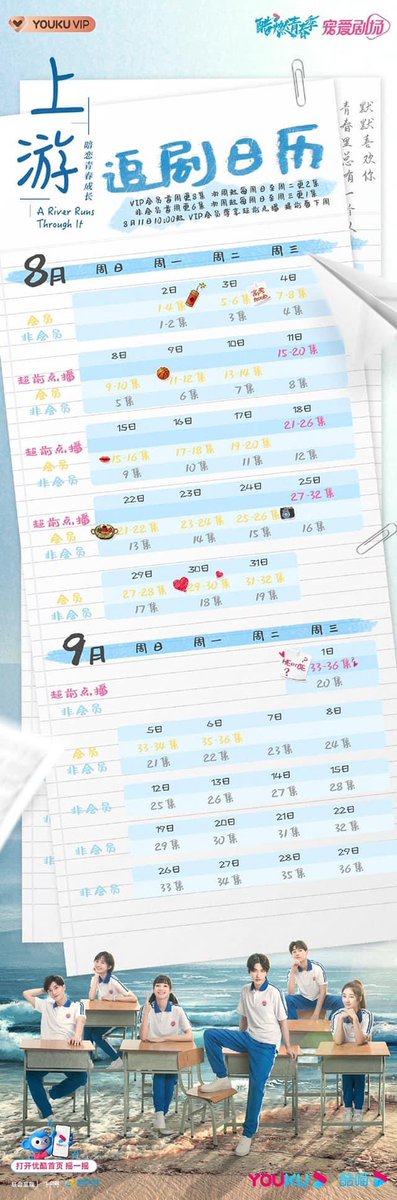 YOUKU VIP
酷燃青春季 宠爱剧场
上游
暗恋青春成长
A River Runs
Through It
默默喜欢你
青春里总有一个人
追剧日历
VIP会员首周更8集 次周起每周日至周二更2集
非会员首周更6集 次周起每周日至周三更1集
8月11日10:00起 VIP会员尊享超前点播 提前看下周
8月 周日 周一 周二 周三
2日 3日 4日
会员 1-4集 5-6集 7-8集
非会员 1-2集 3集 4集
8日 9日 10日 11日
超前点播 15-20集
会员 9-10集 11-12集 13-14集
非会员 5集 6集 7集 8集
15日 16日 17日 18日
超前点播 21-26集
会员 15-16集 17-18集 19-20集
非会员 9集 10集 11集 12集
22日 23日 24日 25日
超前点播 27-32集
会员 21-22集 23-24集 25-26集
非会员 13集 14集 15集 16集
29日 30日 31日
会员 27-28集 29-30集 31-32集
非会员 17集 18集 19集
9月 周日 周一 周二 周三
1日
HE or BE
?
?
超前点播 33-36集
非会员 20集
5日 6日 7日 8日
会员 33-34集 35-36集
非会员 21集 22集 23集 24集
12日 13日 14日 15日
非会员 25集 26集 27集 28集
19日 20日 21日 22日
非会员 29集 30集 31集 32集
26日 27日 28日 29日
非会员 33集 34集 35集 36集
打开优酷首页 摇一摇
YOUKU 酷喵